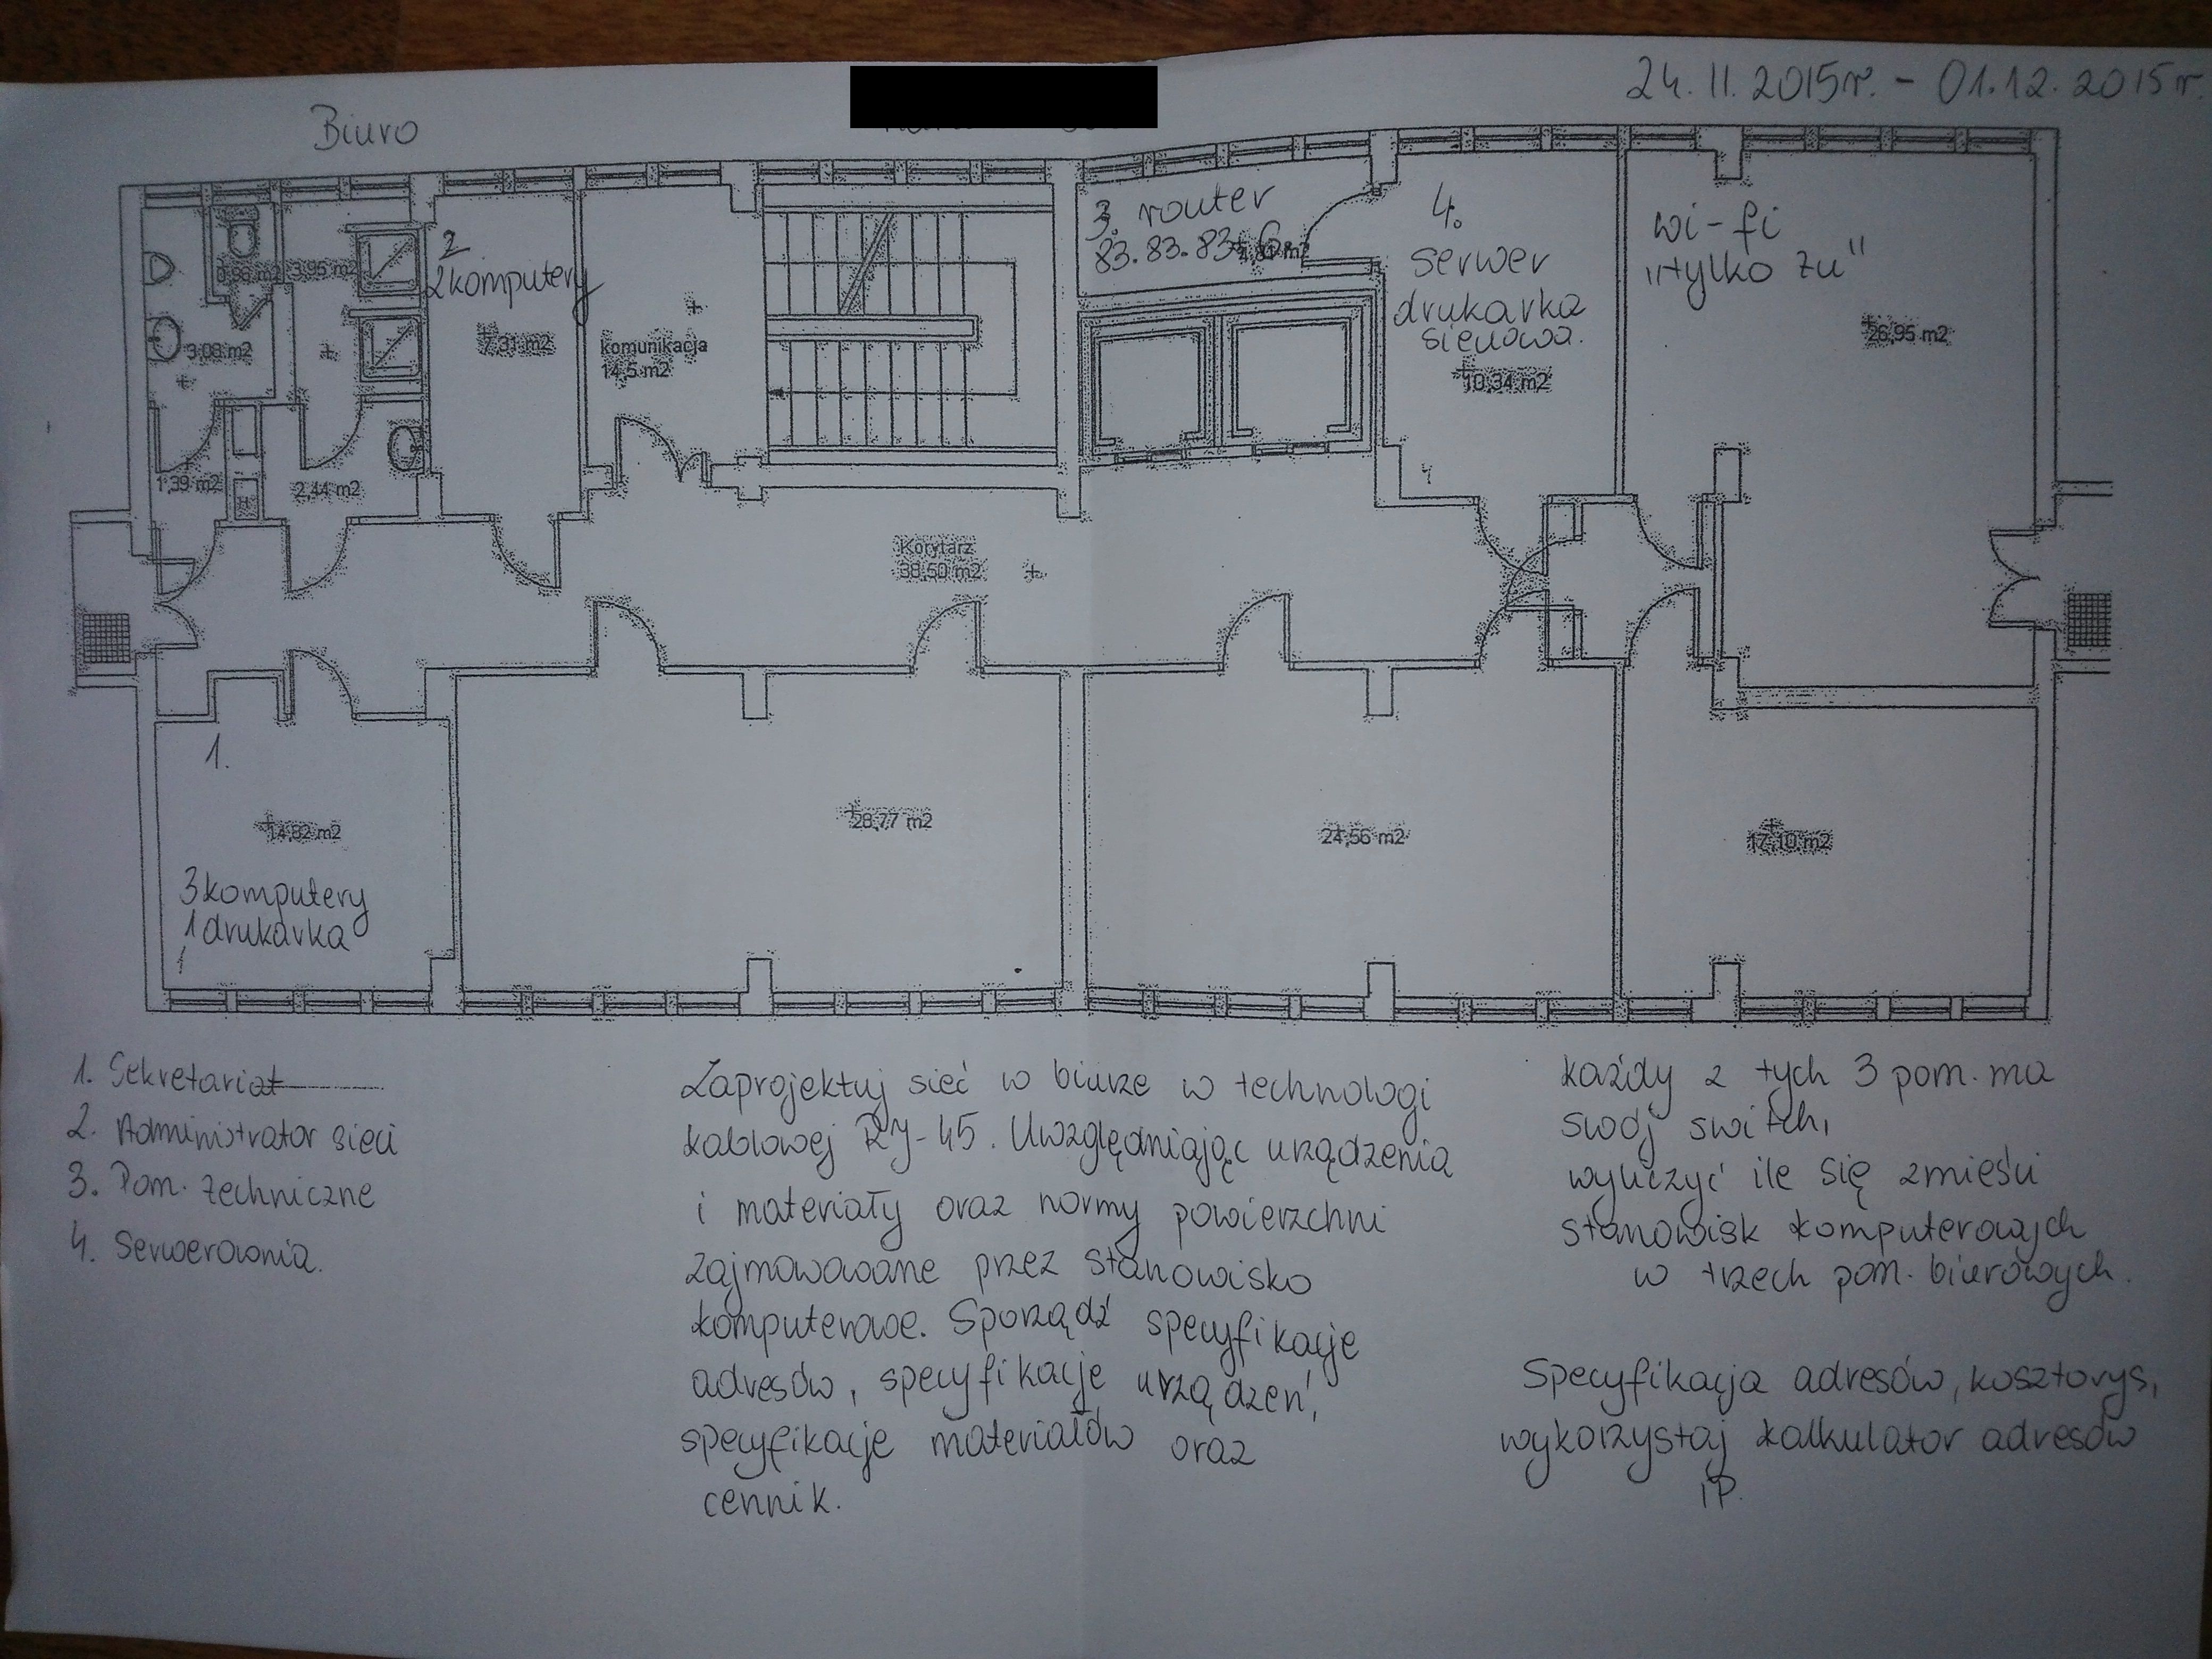 24.11.2015r. - 01.12.2015r.
Biuro
3. router
83.83.83.
4.
serwer
drukarka
sieciowa.
wi-fi
"tylko tu"
2
2 komputery
0,96 m2
3,95 m2
3,08 m2
7,31 m2
komunikacja
14,5 m2
10,34 m2
26,95 m2
1,39 m2
2,44 m2
Korytarz
38,50 m2
1.
14,82 m2
28,77 m2
24,56 m2
17,10 m2
3 komputery
1 drukarka
1. Sekretariat
2. Administrator sieci
3. Pom. techniczne
4. Serwerownia.
Zaprojektuj sieć w biurze w technologi
kablowej RJ-45. Uwzględniając urządzenia
i materiały oraz normy powierzchni
zajmowawane przez stanowisko
komputerowe. Sporządź specyfikacje
adresów, specyfikacje urządzeń,
specyfikacje materiałów oraz
cennik.
każdy z tych 3 pom. ma
swój switch,
wyliczyć ile się zmieści
stanowisk komputerowych
w trzech pom. biurowych.
Specyfikacja adresów, kosztorys,
wykorzystaj kalkulator adresów
IP.